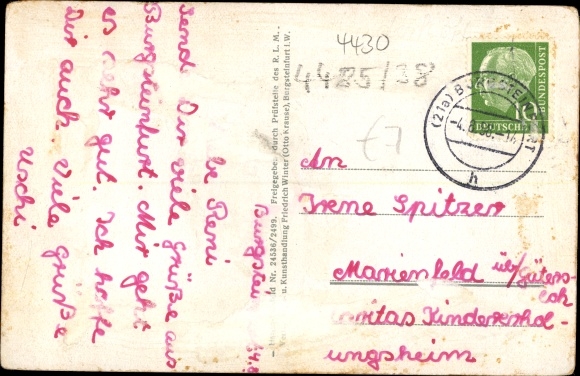 Burgstei
4.8.
be Reni
send Dir viele Grüße aus
Burgsteinfurt. Mir geht
es sehr gut. Ich hoffe
Dir auch. Viele Grüße
Uschi
Nr. 24536/2499. Freigegeben durch Prüfstelle des R. L. M.
u. Kunsthandlung Friedrich Winter (Otto Krause), Burgsteinfurt i.W.
4430
4485/38
£7
10
DEUTSCHE
BUNDESPOST
(21a) BURGSTEINFURT
-4.8.
h
An
Irene Spitzer
Marienfeld üb/Güters-
loh
Caritas Kindererhol-
ungsheim